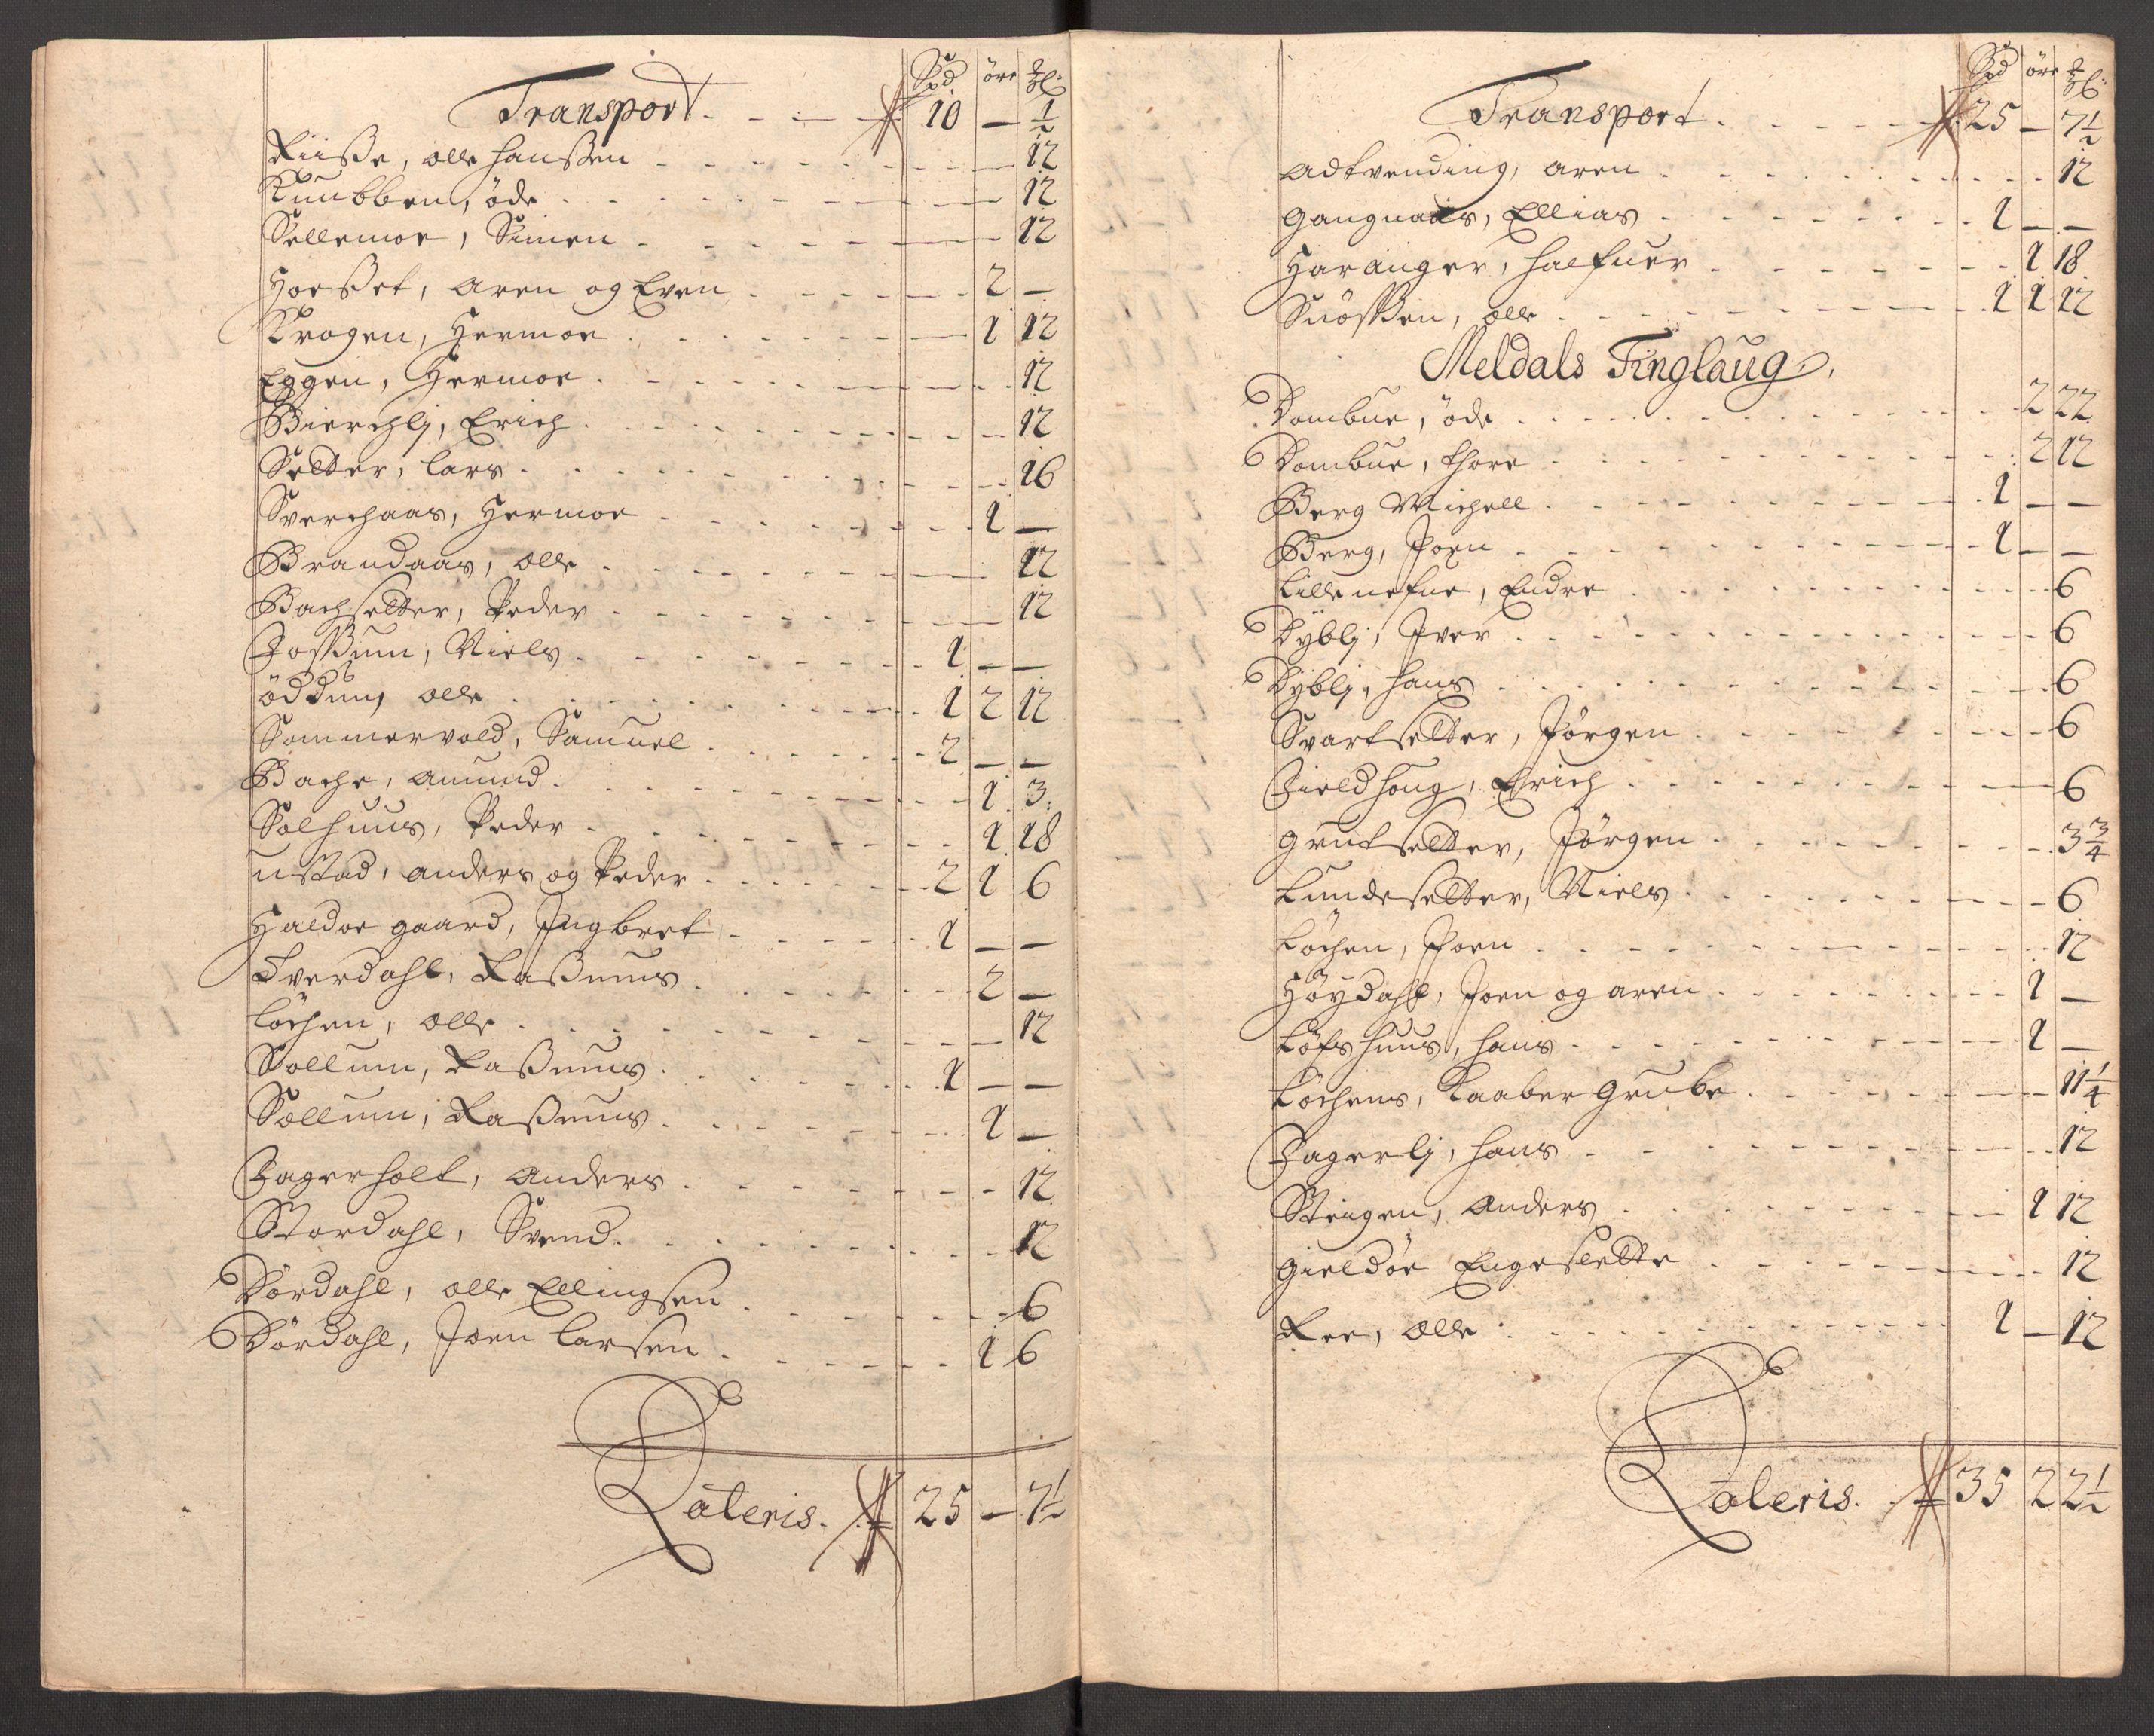 Spd öre
Transport 10 — 1/2
Riiße, olle Hanßen 12
Knubben, öde 12
Sellemoe, Simen 12
Hoeßet, aren og Even 2 —
Krogen, Hermoe 1 12
Eggen, Hermoe 12
Bierchlj, Erich 12
Setter, Lars 16
Sverchaas, Hermoe 1 —
Brandaas, olle 12
Bachsetter, Peder 12
Joßum, Niels 1 — —
öddum, olle 1 2 12
Sommervold, Samuel 2 — —
Bache, amund 1 3
Solhuus, Peder 1 18
ustad, anders og Peder 2 1 6
Haldoe gaard, Ingbret 1 — —
Tverdahl, Raßmus 2 —
Löchen, olle 12
Sollum, Raßmus 1 — —
Sollum, Raßmus 1 —
Fagerholt, anders 12
Stordahl, Svend 12
Dördahl, olle Ellingsen 6
Dördahl, Joen Larsen 1 6
Lateris. 25 — 7 1/2
Spd öre
Transport 25 — 7 1/2
adtvending, aren 12
Gangnaas, Ellias 1 — —
Haranger, Halfuer 1 18
Snößen, olle 1 1 12
Meldals Tinglaug
Dombue, öde 2 22
Dombue, Thore 2 12
Berg Michell 1 — —
Berg, Joen 1 — —
Lillenefue, Endre 6
Dyblj, Iver 6
Dyblj, Hans 6
Svartsetter, Jörgen 6
Fieldhoug, Erich 6
Grutsetter, Jörgen 3 3/4
Lundesetter, Niels 6
Löchen, Joen 12
Höydahl, Joen og aren 1 —
Löfshuus, Hans 1 —
Löchens, Kaaber Grube 11 1/4
Fagerlj, Hans 12
Steigen, Anders 1 12
Gieldöe Engeslette 12
Ree, Olle 1 — 12
Lateris. 35 2 2 1/2